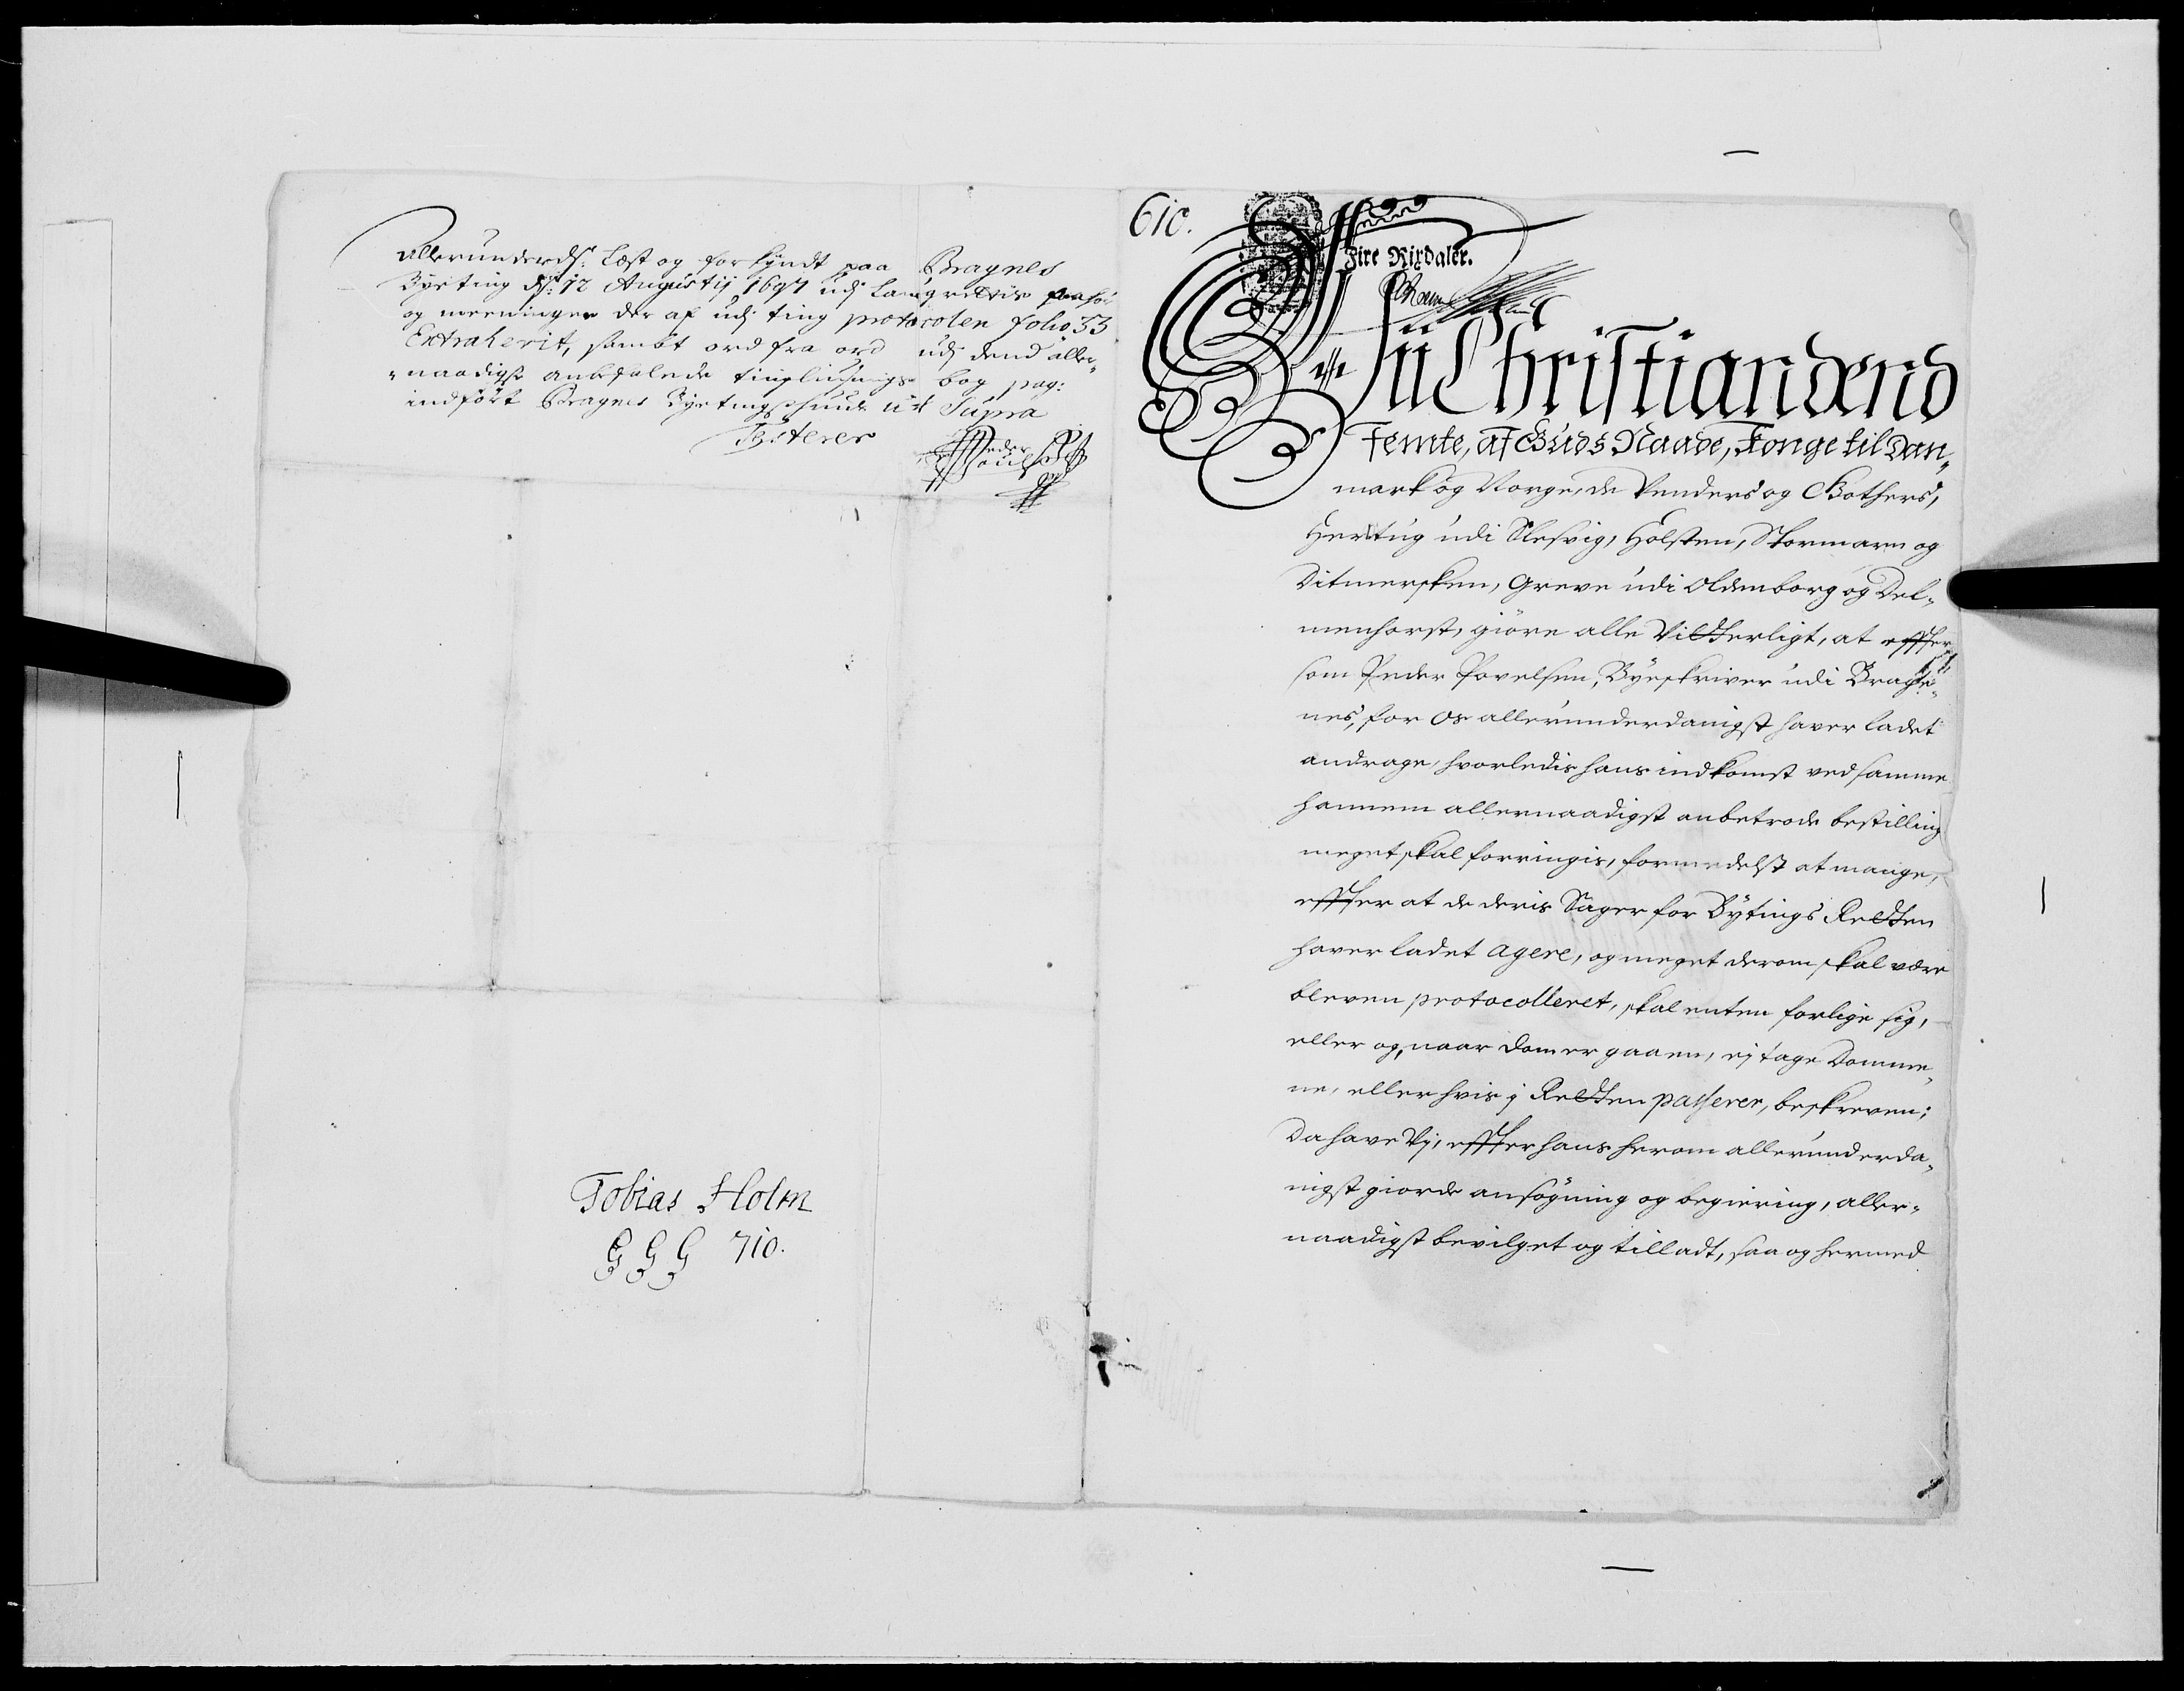 Allerunderdst: Læst og forkyndt paa Bragnes
Byeting dh: 12 Augustij 1697 udj Laugrettis paahör
og meeningen der af udj ting protocolen folio 33
Extraherit, sambt ord fra ord udj dend aller-
naadigst anbefalede tinglysnings bog pag:
indfört Bragnes Byetingstuude ut Supra
Testerer
Peder Poulsen
Tobias Holm
G G G 710.
610.
Fire Rixdaler.
Vii Christian dend
Femte, af Guds Naade, Konge til Dan-
mark og Norge, de Venders og Gothers,
Hertug udi Slesvig, Holsten, Stormarn og
Ditmersken, Greve udi Oldenborg og Del-
menhorst, giöre alle Vitterligt, at efter-
som Peder Povelsen, Byeskriver udi Brage-
nes, for Os allerunderdanigst haver ladet
andrage, hvorledis hans indkomst ved samme
hannem allernaadigst anbetrode bestilling
meget skal forringis, formedelst at mange,
efter at de deris Sager for Bytings Retten
haver ladet agere, og meget derom skal være
bleven protocolleret, skal enten forlige sig,
eller og, naar Dom er gaaen, ej tage Domme-
ne, eller hvis j Retten passerer, beskreven;
Da have Vj, efter hans herom allerunderda-
nigst giorde ansögning og begiering, aller-
naadigst bevilget og tilladt, saa og hermed